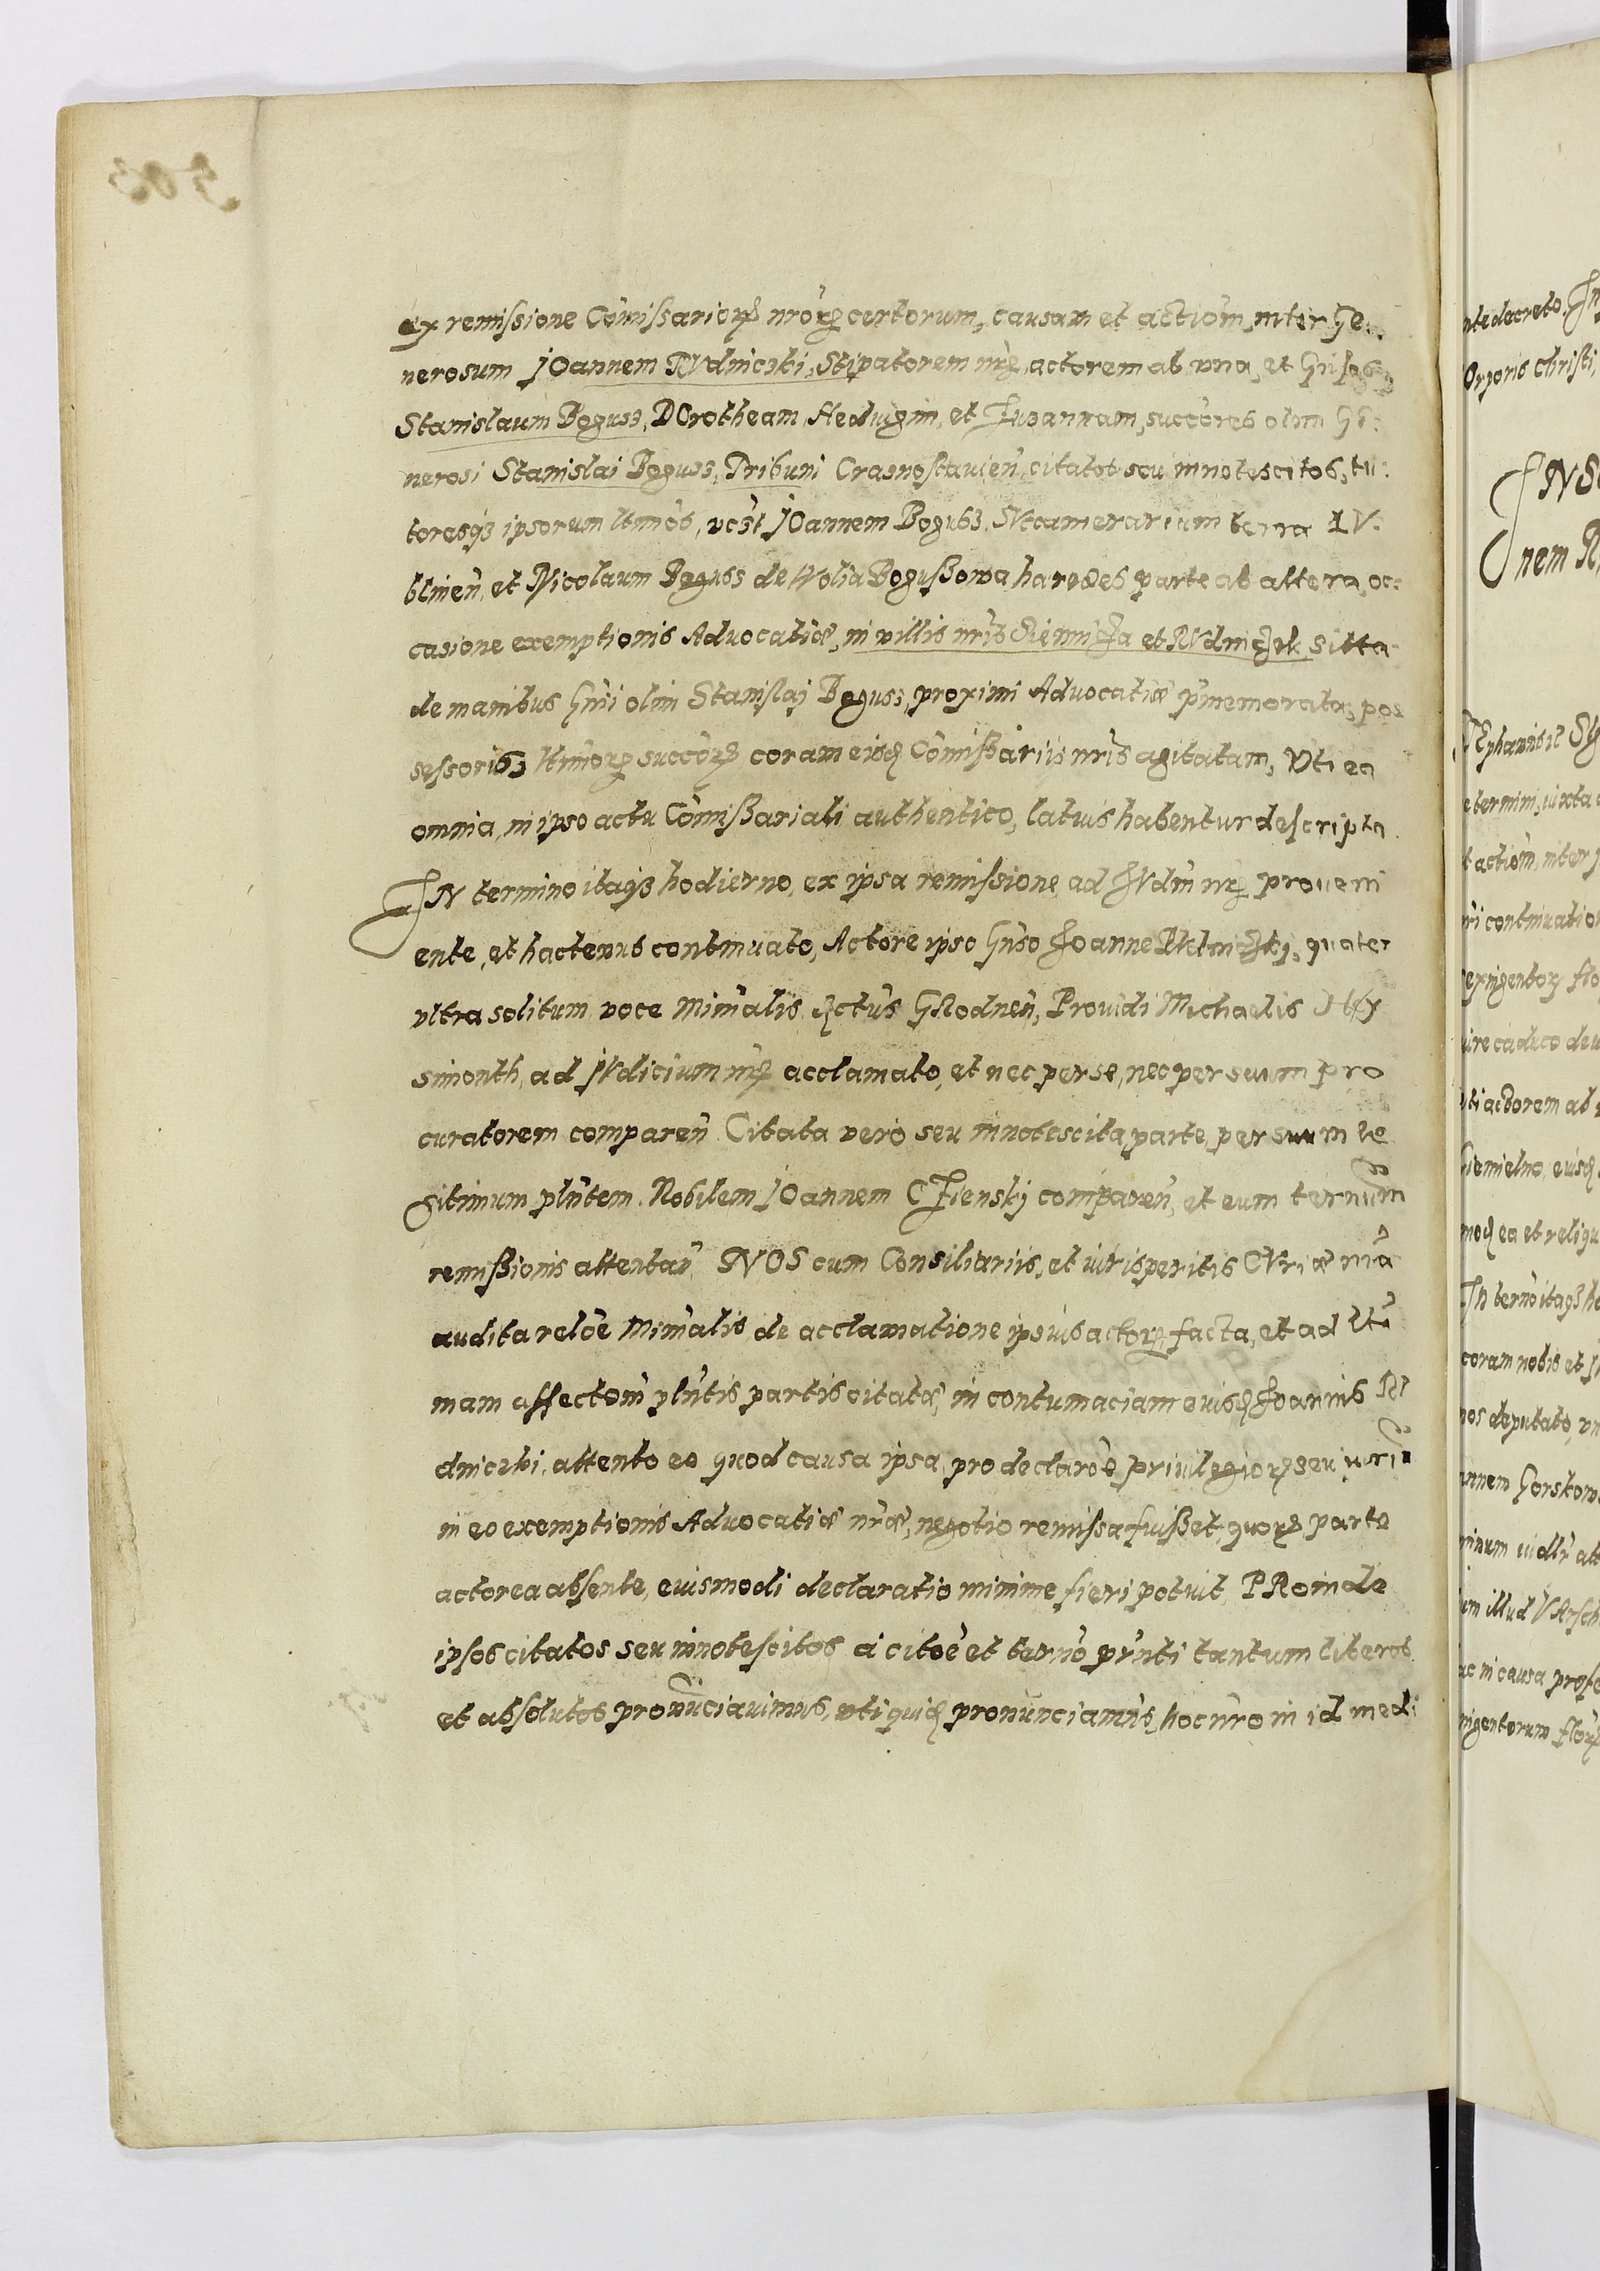 ex remissione Cômissarioꝝ nrôꝝ certorum, causam et actiom̃, inter Ge
nerosum JOannem RVdniczki, Stipatorem nrm̃, actorem ab vna, et Gn̄sos
Stanislaum Boguss, DOrotheam, Hedvigim, et Zuzannam, succores olim Ge:
nerosi Stanislai Boguss, Tribuni Crasnostauien̄, citatos seu innotescitos, tu:
toresqꝫ ipsorum ltimos, vcst JOannem Bogusz, SVccamerarium terra LV:
blinen̄, et Nicolaum Bogusz de Wolia Bogußowa haredes parte ab altera, oc:
casione exemptionis Advocatiæ, in villis nris Siennicza et RVdniczek sitta
de manibus Gn̄si olim Stanislaj Boguss, proximi Advocatiæ pmemorata, pos
sessoris, ltimoꝝ succoꝝ coram eisdꝫ Cômißariis nris agitatam, Vti ea
omnia, in ipso actu Cômißariali authentico, latius habentur descripta.
IN termino itaqꝫ hodierno, ex ipsa remissione ad IVdm̃ nrm̃ proueni
ente, et hactenus continuato, Actore ipso Gn̄so Joanne RVdniczkj, quater
vltra solitum voce Minr̃alis Actus GRodnen̄, Prouidi Michaelis
simonth, ad JVdicium nrm̃ acclamato, et nec per se, nec per suum pro
curatorem comparen̄. Citata vero seu innotescita parte, per suum le
gitimum plnt̃em Nobilem JOannem CZienskj comparen̄, et eum ternum̃
remißionis attentan̄, NOS cum Consiliariis, et iurisperitis CVriæ nrã
audita relõe Minr̃alis de acclamatione ipsius actoꝝ facta, et ad lti
mam affectom̃ plnt̃is partis citatæ, in contumaciam eiusdꝫ Joannis RV
dniczki, attento eo quod causa ipsa, pro declarõe priuilegioꝝ seu iuriũ
in eo exemptionis Advocatiæ nræ, negotio remissa fuißet, quoꝝ parte
actorea absente, eiusmodi declaratio minime fieri potuit, PRoinde
ipsos citatos seu innotescitos á citõe et ternõ pn̄ti tantum liberos
et absolutos pronũciauimus, vti quidꝫ pronũnciamus, hoc nr̃o in id medi